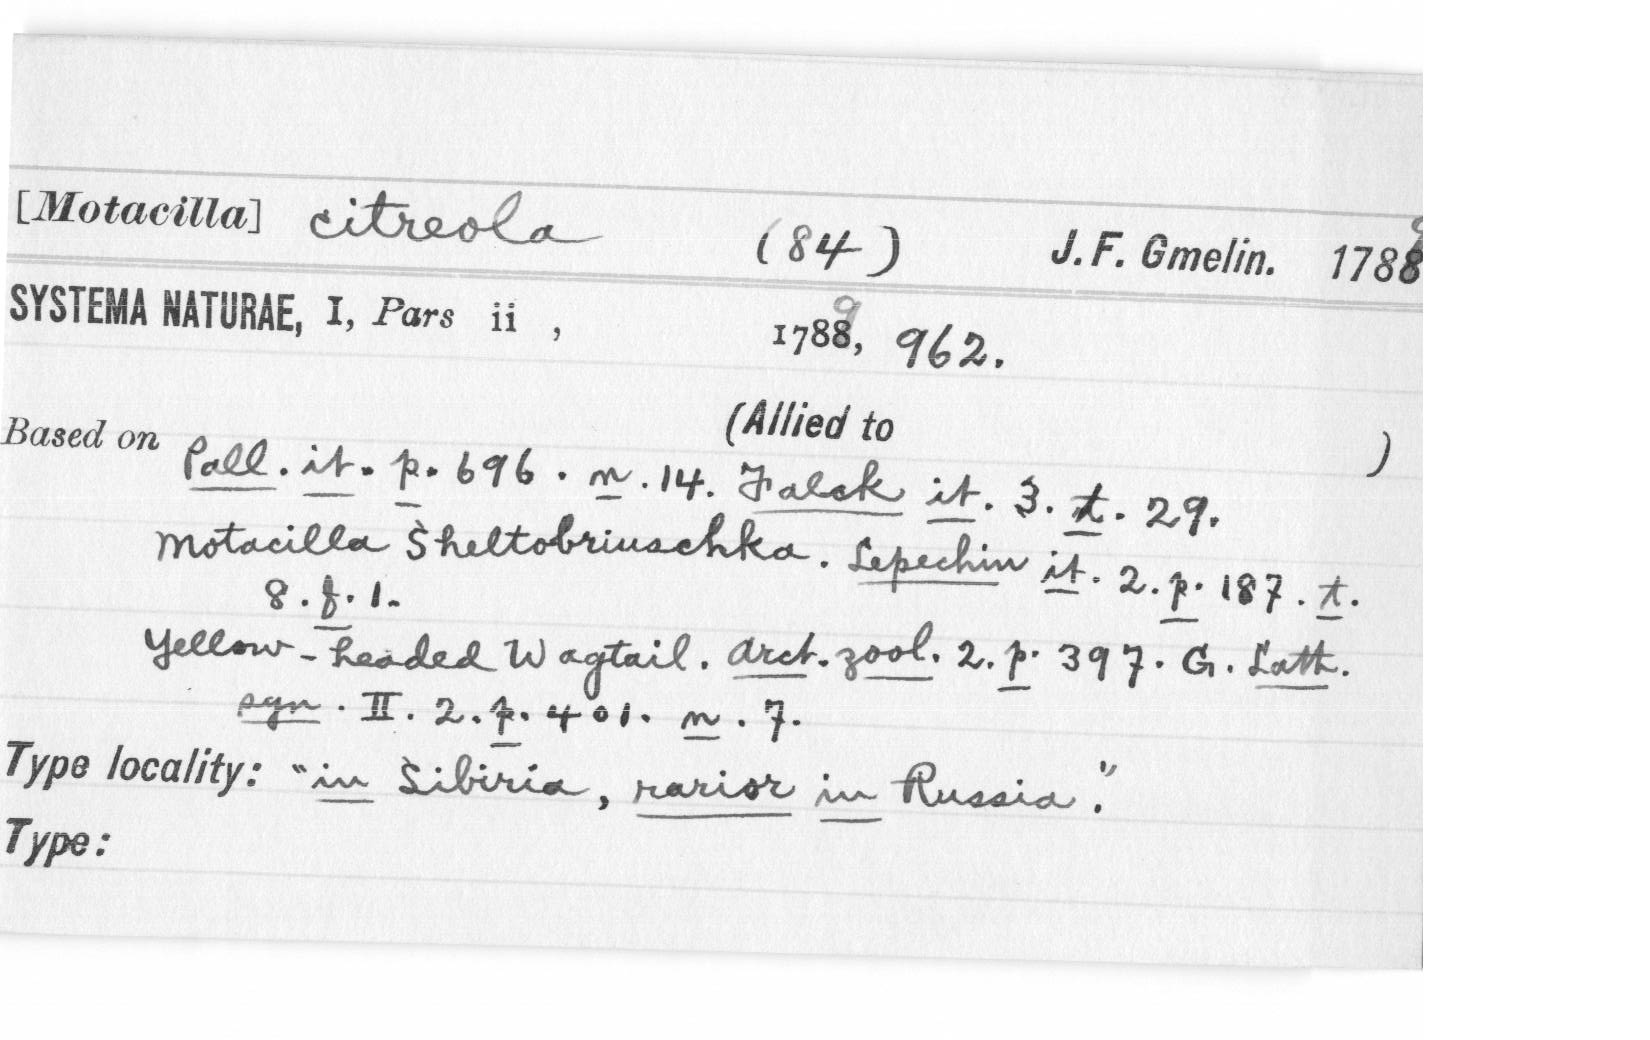 [Motacilla] citreola (84) J. F. Gmelin. 1788 9
SYSTEMA NATURAE, I, Pars ii , 1788 9, 962.
(Allied to )
Based on Pall. it. p. 696. n. 14. Falck it. 3. t. 29.
Motacilla Scheltobriuschka. Lepechin it. 2. p. 187. t.
8. f. 1.
Yellow-headed Wagtail. Arct. zool. 2. p. 397. G. Lath.
syn. II. 2. p. 401. n. 7.
Type locality: "in Sibiria, rarior in Russia."
Type: